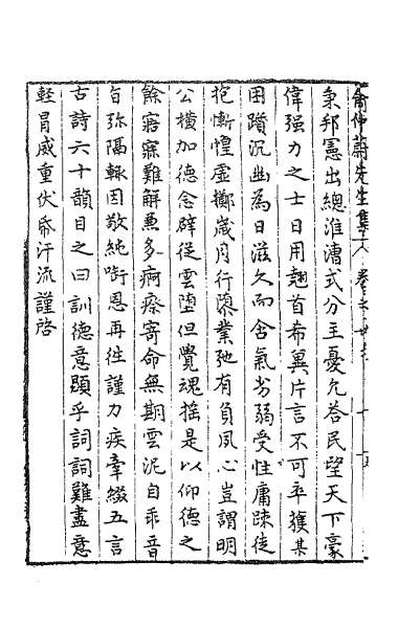 俞仲蔚先生集 卷之
秉邦憲出總淮漕式分主憂允答民望天下豪
偉强力之士日用翹首希冀片言不可卒獲某
困躓沉幽為日滋久而含氣劣弱受性庸疎徒
抱慚惶虛擲歲月行隳業弛有負夙心豈謂明
公橫加德念辟從雲墮但覺魂搖是以仰德之
餘寤寐難解兼多痾瘵寄命無期雲泥自乖音
旨弥隔輙因敬純啣恩再往謹力疾牽綴五言
古詩六十韻目之曰訓德意顕乎詞詞難盡意
輕冒威重伏希汗流謹啓